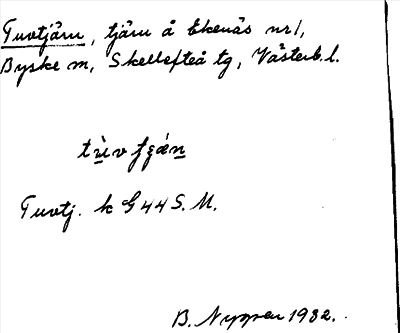 Tuvtjärn, tjärn å Ekenäs nr 1,
Byske sn, Skellefteå tg, Västerb. l.
Tuvtj. k G 44 S. M.
B. Nygren 1932.